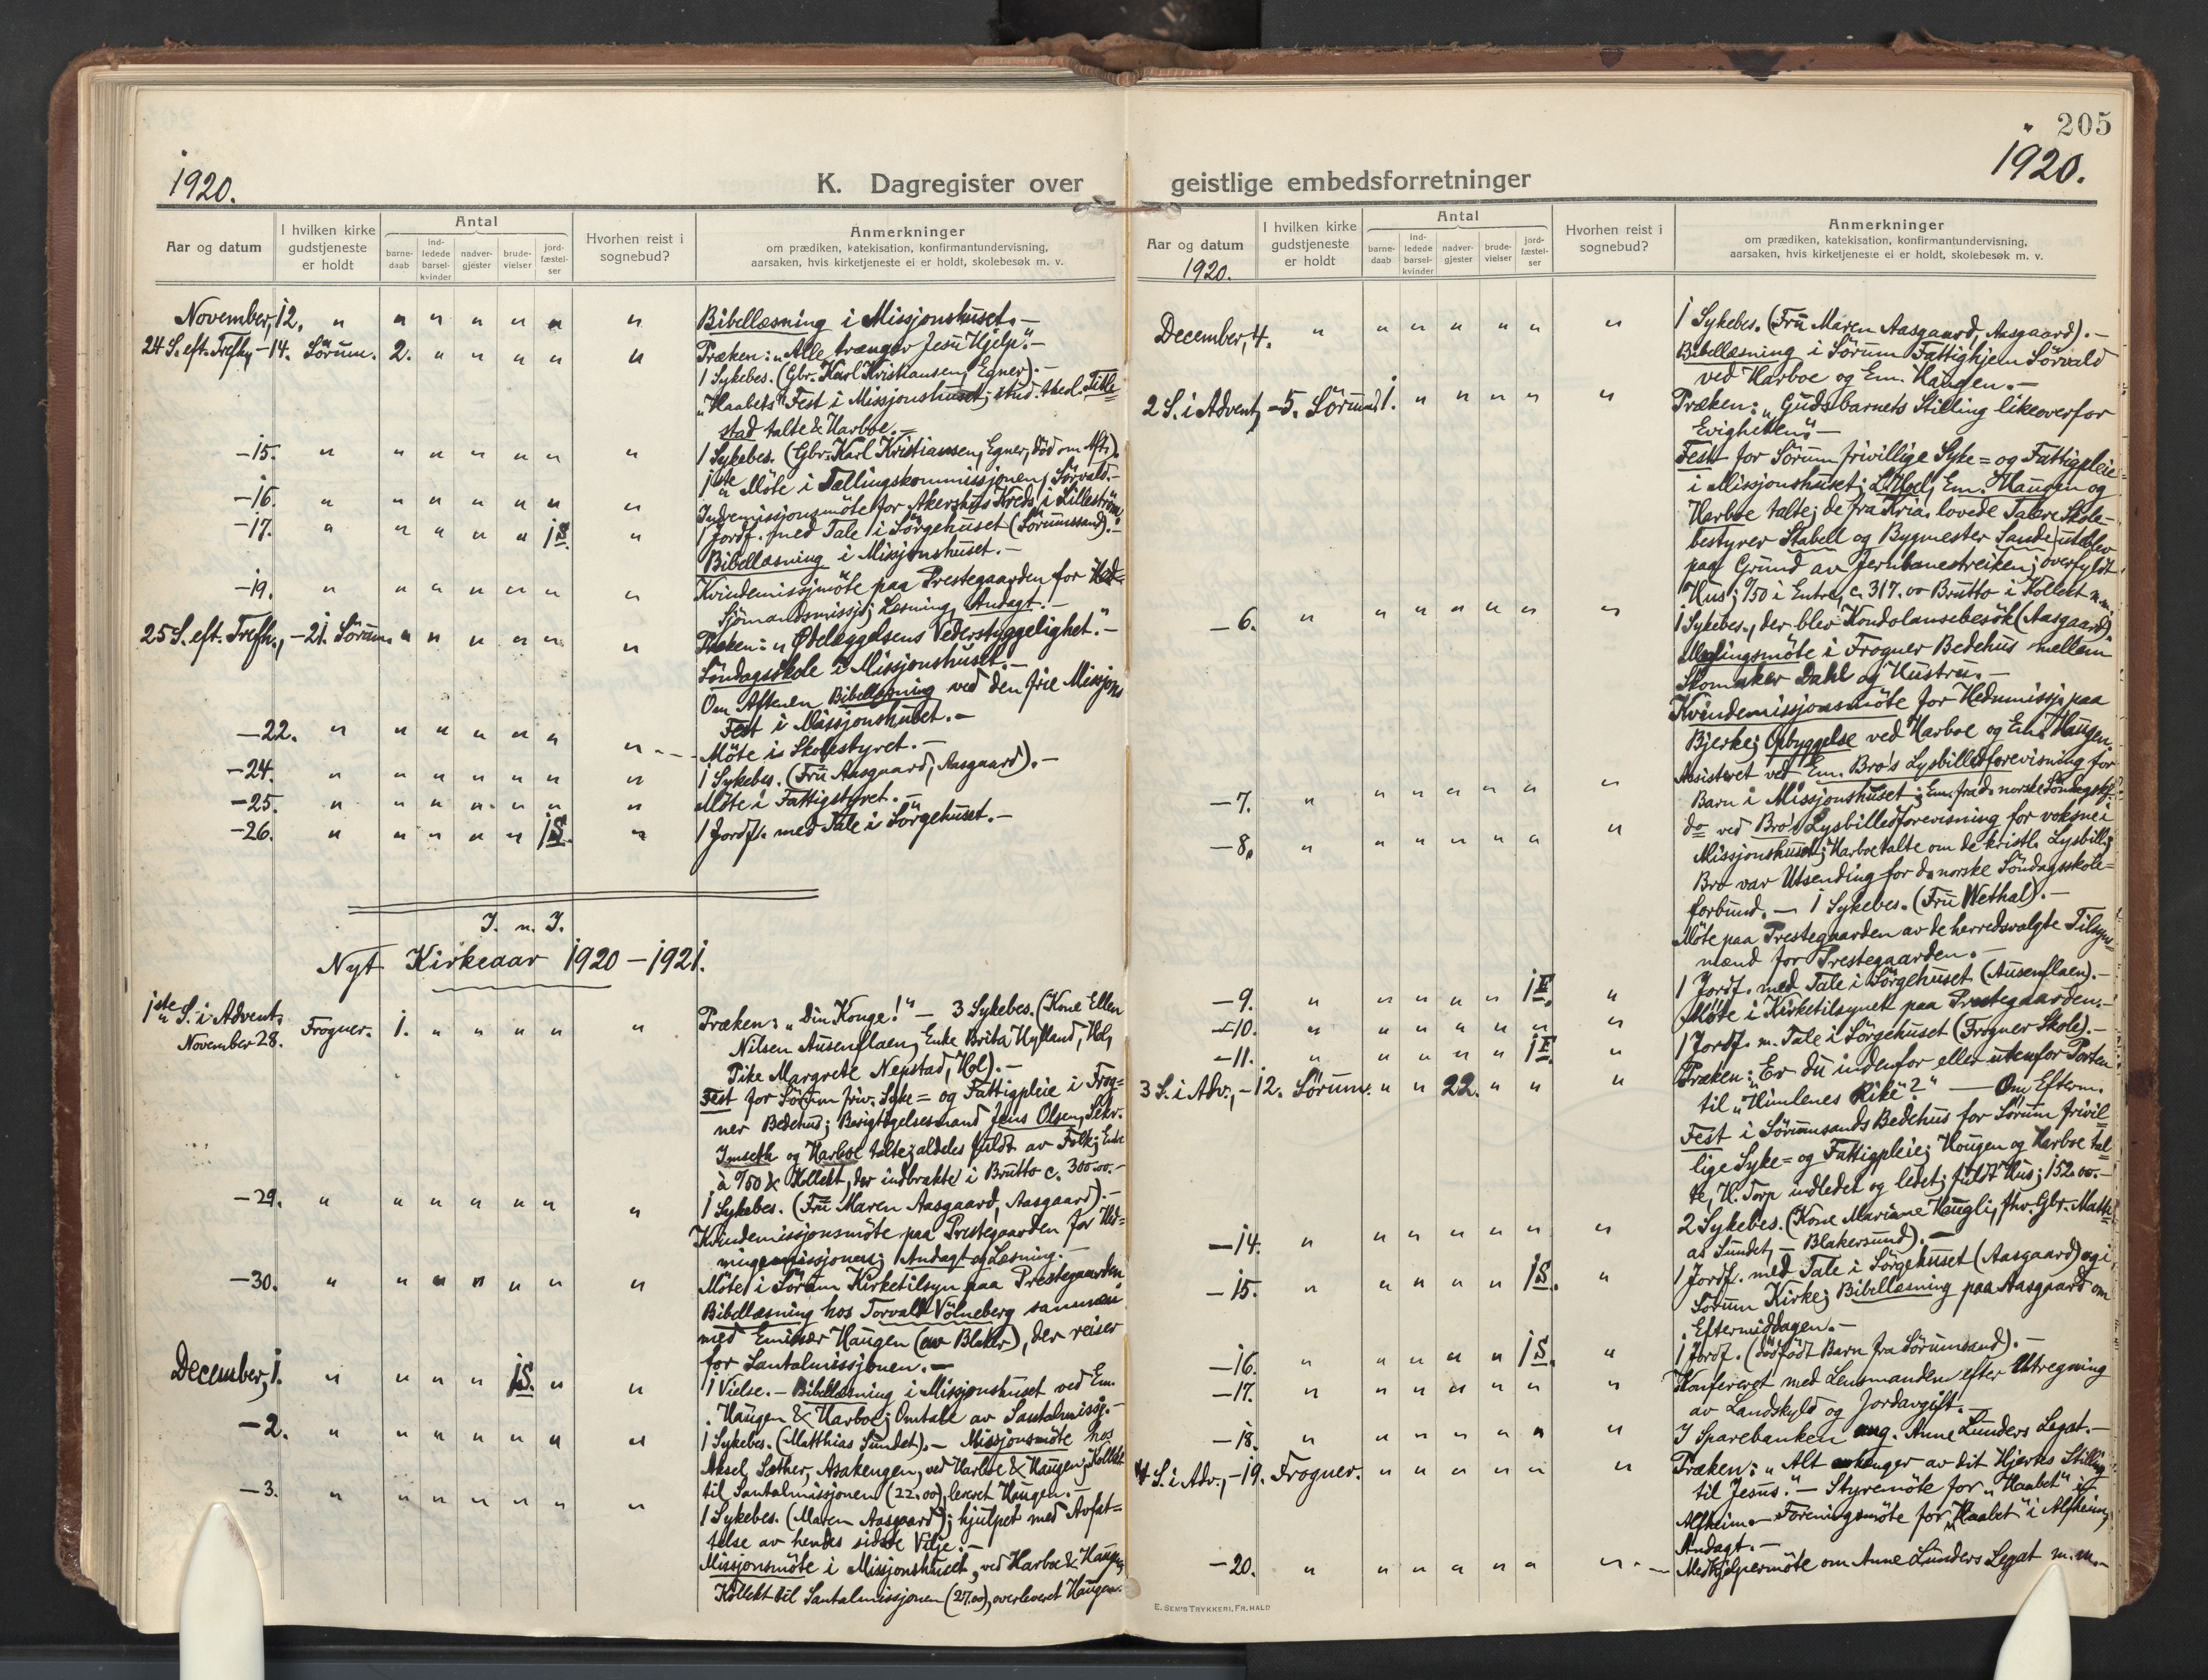 1920.
K. Dagregister over
Aar og datum
I hvilken kirke gudstjeneste er holdt
Antal
barne-daab
ind-ledede barsel-kvinder
nadver-gjester
brude-vielser
jord-fæstel-ser
Hvorhen reist i sognebud?
Anmerkninger
om prædiken, katekisation, konfirmantundervisning,
aarsaken, hvis kirketjeneste ei er holdt, skolebesøk m. v.
November, 12. " " " " " " " Bibellæsning i Missjonshuset. —
24 S. eft. Trefh, – 14. Sörum. 2. " " " " " Præken: „Alle trænger Jesu Hjelp". —
1 Sykebes. (Gbr. Karl Kristiansen, Egner). —
„Haabets" Fest i Missjonshuset; stud. theol. Title-
stad talte & Harboe. —
– 15. " " " " " " " 1 Sykebes. (Gbr. Karl Kristiansen, Egner, död om Aft.).
1ste Möte i Tællingskommissjonen, Sörvald. —
– 16. " " " " " " " Indremissjonsmöte for Akershus Kreds i Lilleström.
– 17. " " " " " 1 S. " 1 Jordf. med Tale i Sörgehuset (Sörumssand). —
Bibellæsning i Missjonshuset. —
– 19. " " " " " " " Kvindemissjmöte paa Prestegaarden for Hed=
Sjömandsmissj; Læsning, Andagt. —
25 S. eft. Trefh., – 21. Sörum. " " " " " " Præken: „Ödelæggelsens Vederstyggelighet." —
Söndagsskole i Missjonshuset. —
Om Aftenen Bibellæsning ved den frie Missjons
Fest i Missjonshuset. —
– 22. " " " " " " " Möte i Skolestyret. —
– 24. " " " " " " " 1 Sykebes. (Fru Aasgaard, Aasgaard). —
– 25. " " " " " " " Möte i Fattigstyret. —
– 26. " " " " " 1 S. " 1 Jordf. med Tale i Sörgehuset. —
I. n. J.
Nyt Kirkeaar 1920 – 1921.
1ste S. i Advent,
November 28. Frogner. 1. " " " " " Præken: „Din Konge!" — 3 Sykebes. (Kone Ellen
Nilsen Ausenflaen, Enke Brita Hylland, Hol,
Pike Margrete Nepstad, Hol). —
Fest for Sörum friv. Syke= og Fattigpleie i Frog=
ner Bedehus; Olsen, Sekr.
Imseth og Harboe talte; aldeles fuldt av Folk; Entre
à 0/50 & Kollekt, der indbrakte i Brutto c. 300.00. —
– 29. " " " " " " " 1 Sykebes. (Fru Maren Aasgaard, Aasgaard). —
Kvindemissjonsmöte paa Prestegaarden for Hed=
ningemissjonen; Andagt og Læsning. —
– 30. " " " " " " " Möte i Sörum Kirketilsyn paa Prestegaarden
Bibellæsning hos Torvald Völneberg sammen
med Emisær Haugen (av Blaker), der reiser
for Santalmissjonen. —
December, 1. " " " " 1 S. " " 1 Vielse. — Bibellæsning i Missjonshuset ved Em.
Haugen & Harboe; Omtale av Santalmissj. —
– 2. " " " " " " " 1 Sykebes. (Matthias Sundet). — Missjonsmöte hos
Aksel Sæther, Asakengen, ved Harboe & Haugen; Kollekt
til Santalmissjonen (22.00), leveret Haugen. —
– 3. " " " " " " " 1 Sykebes. (Maren Aasgaard); hjulpet med Avfat=
telse av hendes sidste Vilje. —
Missjonsmöte i Missjonshuset, ved Harboe & Haugen,
Kollekt til Santalmissjonen (27.00), overleveret Haugen.
205
1920.
geistlige embedsforretninger
Aar og datum
1920.
I hvilken kirke gudstjeneste er holdt
Antal
barne-daab
ind-ledede barsel-kvinder
nadver-gjester
brude-vielser
jord-fæstel-ser
Hvorhen reist i sognebud?
Anmerkninger
om prædiken, katekisation, konfirmantundervisning,
aarsaken, hvis kirketjeneste ei er holdt, skolebesøk m. v.
December, 4. " " " " " " " 1 Sykebes. (Fru Maren Aasgaard, Aasgaard). —
Bibellæsning i Sörum Fattighjem Sörvald
ved Harboe og Em. Haugen. —
2 S. i Advent, – 5. Sörum. 1. " " " " " Præken: „Gudsbarnets Stilling likeoverfor
Evigheten". —
Fest for Sörum frivillige Syke= og Fattigpleie
i Missjonshuset; Em. Haugen og
Harboe talte; de fra Kria. lovede Talere Skole-
bestyrer Stabell og Bygmester Sande, uteblev
paa Grund av Jernbanestreiken; overfyldt
Hus; 0/50 i Entre, c. 317.00 Brutto i Kollekt m.m.
– 6. " " " " " " " 1 Sykebes., der blev Kondolansebesök (Aasgaard).
Meglingsmöte i Frogner Bedehus mellem
Skomaker Dahl og Hustru. —
Kvindemissjonsmöte for Hedn.missj. paa
Bjerke; Opbyggelse ved Harboe og Em. Haugen.
– 7. " " " " " " " Assisteret ved Em. Bro's Lysbilledforevisning for
Barn i Missjonshuset; Em. fra d. norske Söndagsskf.
– 8. " " " " " " " do ved Bro's Lysbilledforevisning for voksne i
Missjonshuset; Harboe talte om de kristl. Lysbill.;
Bro var Utsending for d. norske Söndagsskole=
forbund. — 1 Sykebes. (Fru Wethal). —
Möte paa Prestegaarden av de herredsvalgte Tilsyns=
mænd for Prestegaarden. —
– 9. " " " " " 1 F. " 1 Jordf. med Tale i Sörgehuset (Ausenflaen). —
– 10. " " " " " " " Möte i Kirketilsynet paa Prestegaarden. —
– 11. " " " " " 1 F. " 1 Jordf. m. Tale i Sörgehuset (Frogner Skole). —
3 S. i Adv., – 12. Sörum. " " 22. " " " Præken: Er du indenfor eller utenfor Porten
til „Himlenes Rike"? " — Om Efterm.
Fest i Sörumsands Bedehus for Sörum frivil=
lige Syke= og Fattigpleie; Haugen og Harboe tal=
te, H. Torp indledet og ledet; fuldt Hus; 152.00. —
– 14. " " " " " " " 2 Sykebes. (Kone Mariane Haugli, fhv. Gbr. Matth=
as Sundet, – Blakersund). —
– 15. " " " " " 1 S. " 1 Jordf. med Tale i Sörgehuset (Aasgaard) og i
Sörum Kirke; Bibellæsning paa Aasgaard om
Eftermiddagen. —
– 16. " " " " " 1 S. " 1 Jordf. (dödfödt Barn fra Sörumsand). —
– 17. " " " " " " " Konfereret med Lensmanden efter Utregning
av Landskyld og Jordavgift. —
– 18. " " " " " " " I Sparebanken ang. Anne Lunders Legat. —
4 S. i Adv., – 19. Frogner. " " " " " " Præken: „Alt avhænger av dit Hjertes Stilling
til Jesus". — Styremöte for „Haabet" i
Alfheim. — Foreningsmöte for „Haabet" i Alfheim,
Andagt. —
– 20. " " " " " " " Medhjelpermöte om Anne Lunders Legat m.m. —
E. SEM'S TRYKKERI, FR.HALD